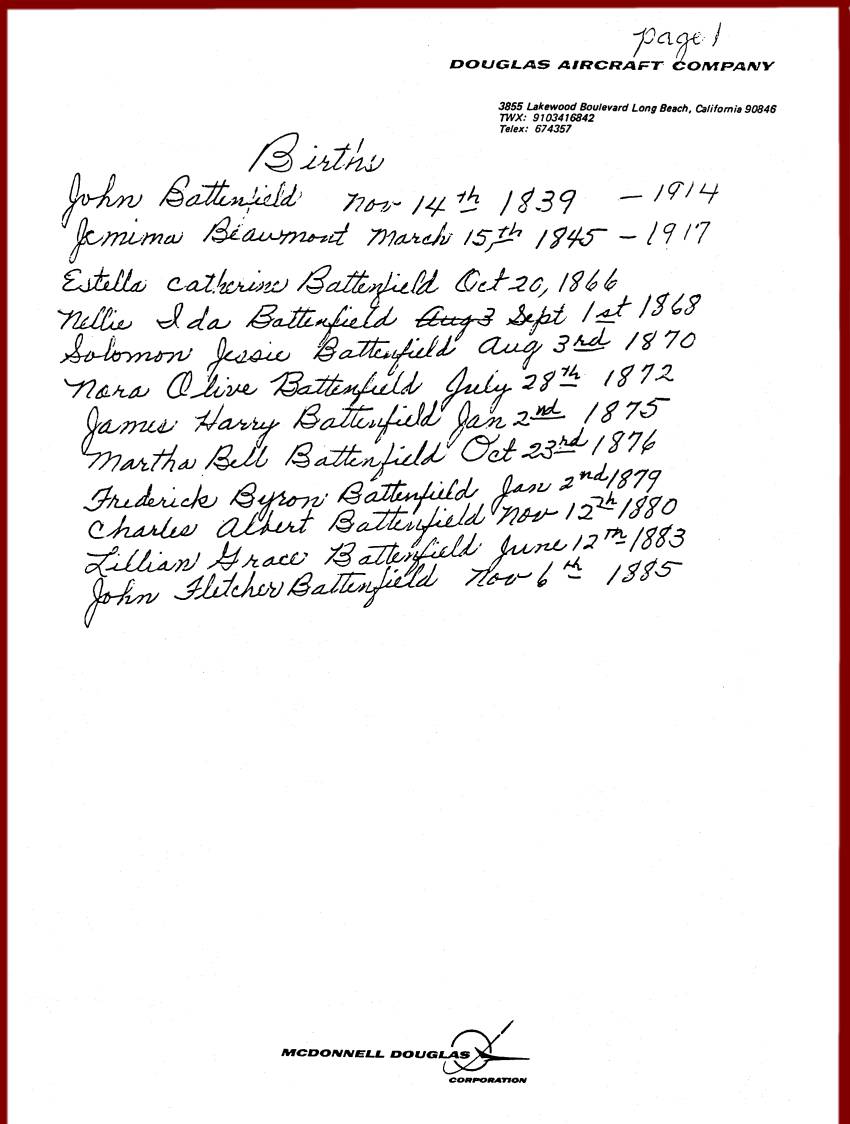 page 1
DOUGLAS AIRCRAFT COMPANY
3855 Lakewood Boulevard Long Beach, California 90846
TWX: 9103416842
Telex: 674357
Births
John Battenfield Nov 14th 1839 - 1914
Jemima Beaumont March 15,th 1845 - 1917
Estella Catherine Battenfield Oct 20, 1866
Nellie Ida Battenfield Aug 3 Sept 1st 1868
Solomon Jessie Battenfield Aug 3rd 1870
Nora Olive Battenfield July 28th 1872
James Harry Battenfield Jan 2nd 1875
Martha Bell Battenfield Oct 23rd 1876
Frederick Byron Battenfield Jan 2nd 1879
Charles Albert Battenfield Nov 12th 1880
Lillian Grace Battenfield June 12th 1883
John Fletcher Battenfield Nov 6th 1885
MCDONNELL DOUGLAS
CORPORATION